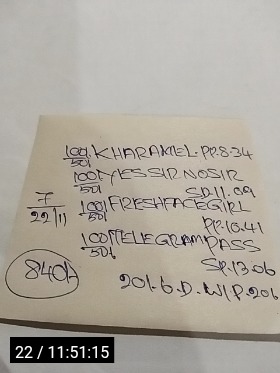 100/50 KHARAMEL. PP. 8.34
100/50 YES SIR NO SIR
SD. 11.09
7
22/11
100/50 FRESHFACEGIRL
PP. 10.41
100/50 TELEGRAM PASS
SP. 13.06
840
201. 6. D. W/P. 201
22 / 11:51:15